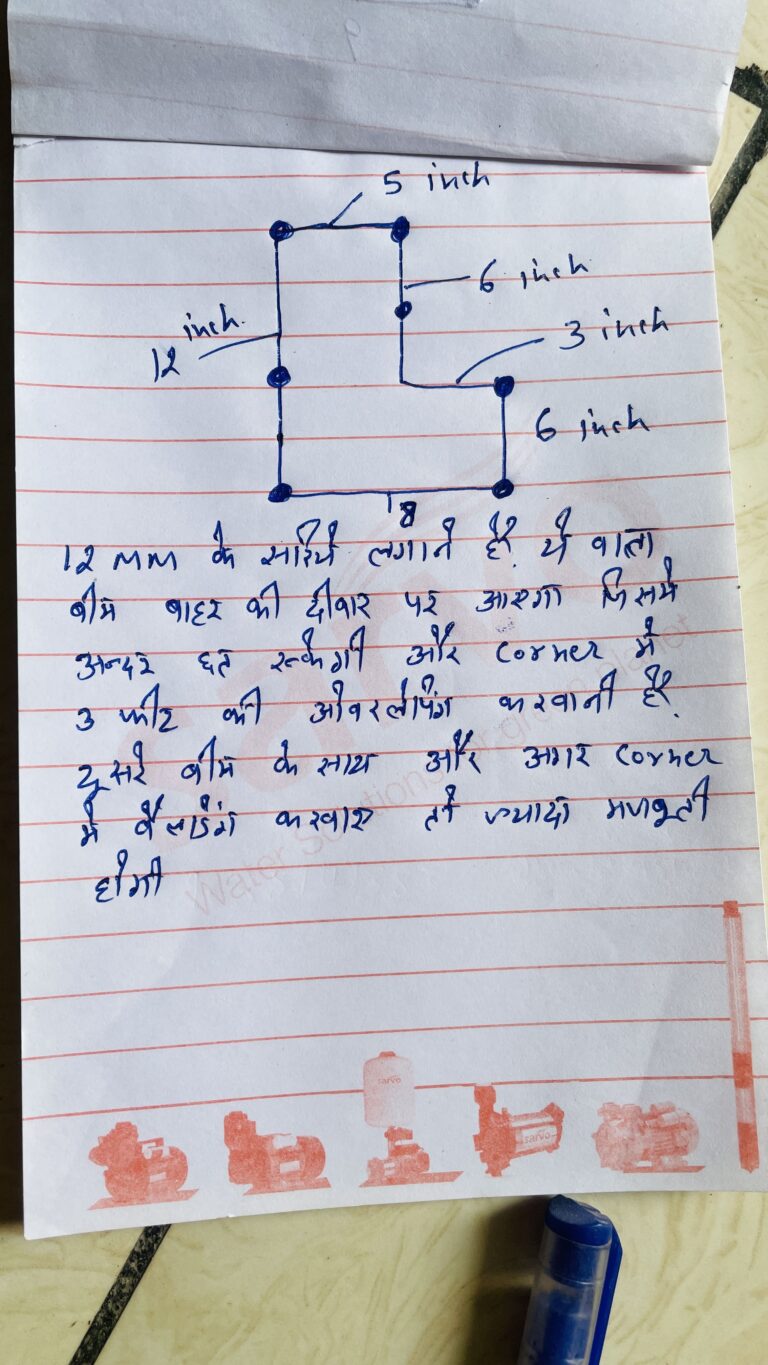 5 inch
6 inch
inch.
12
3 inch
6 inch
8
12 MM के सारिये लगाने है. ये वाला
बीम बाहर की दीवार पर आएगा जिसमे
अन्दर छत रूकेगी और corner मे
3 फीट की ओवरलेपिंग करवानी है.
दूसरे बीम के साथ और अगर corner
मे वैलडिंग करवाए तो ज्यादा मजबूती
होगी
Water Solutions for green planet
sarvo
sarvo